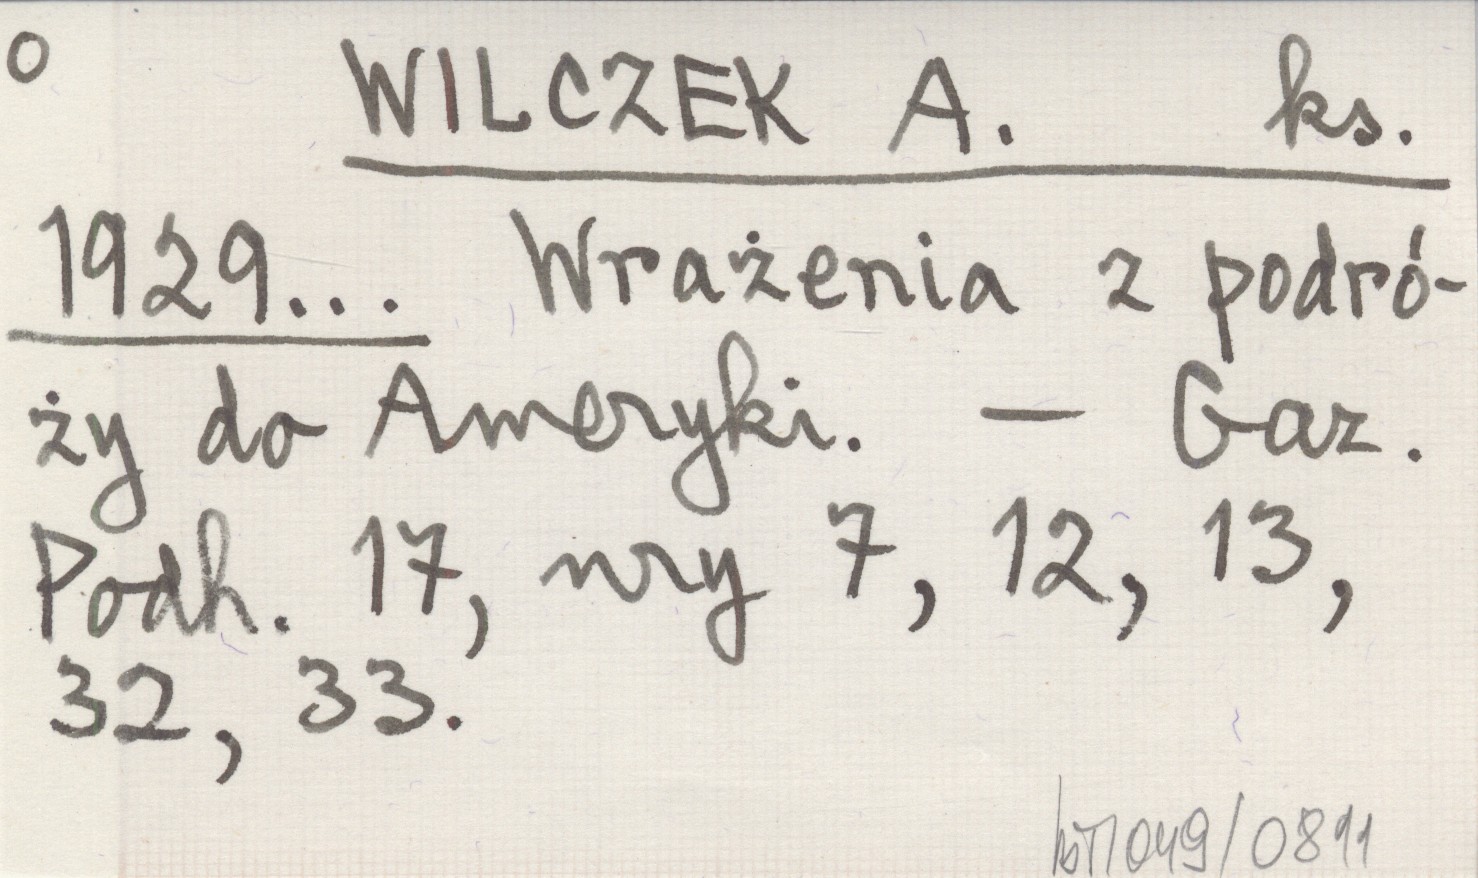 O WILCZEK A. ks.
1929... Wrażenia z podró-
ży do Ameryki. — Gaz.
Podh. 17, nry 7, 12, 13,
32, 33.
049/0811